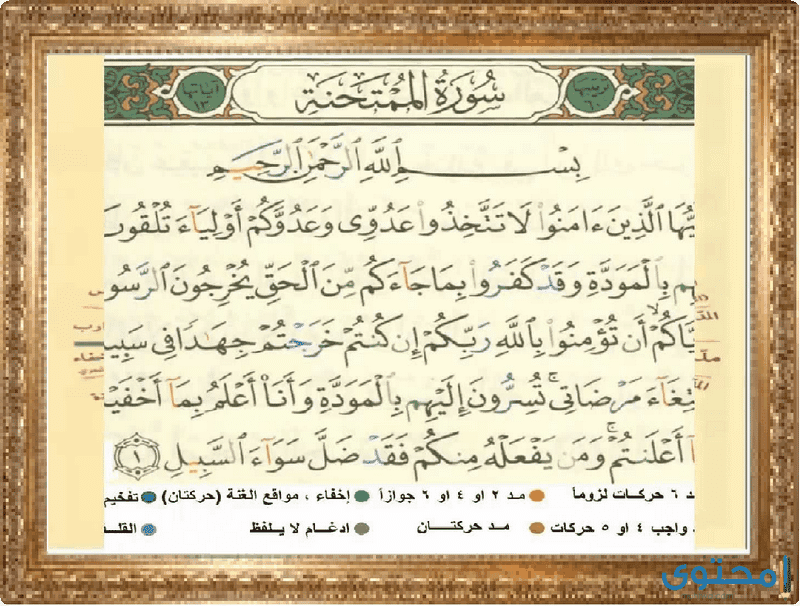 ترتيبها ٦٠
سُورَةُ المُمْتَحنَةِ
آياتها ١٣
بِسْمِ اللَّهِ الرَّحْمَٰنِ الرَّحِيمِ
يُّهَا الَّذِينَ ءَامَنُوا۟ لَا تَتَّخِذُوا۟ عَدُوِّى وَعَدُوَّكُمْ أَوْلِيَآءَ تُلْقُونَ
هِم بِالْمَوَدَّةِ وَقَدْ كَفَرُوا۟ بِمَا جَآءَكُم مِّنَ الْحَقِّ يُخْرِجُونَ الرَّسُو
يَّاكُمْ ۙ أَن تُؤْمِنُوا۟ بِاللَّهِ رَبِّكُمْ إِن كُنتُمْ خَرَجْتُمْ جِهَٰدًا فِى سَبِي
تِغَآءَ مَرْضَاتِى ۚ تُسِرُّونَ إِلَيْهِم بِالْمَوَدَّةِ وَأَنَا۠ أَعْلَمُ بِمَآ أَخْفَيْ
آ أَعْلَنتُمْ ۚ وَمَن يَفْعَلْهُ مِنكُمْ فَقَدْ ضَلَّ سَوَآءَ السَّبِيلِ ١
ـد ٦ حركات لزوماً مد ٢ او ٤ او ٦ جوازاً إخفاء ، مواقع الغنة (حركتان) تفخيم
واجب ٤ او ٥ حركات مد حركتــان ادغام لا يـلفظ القلـ
محتوى